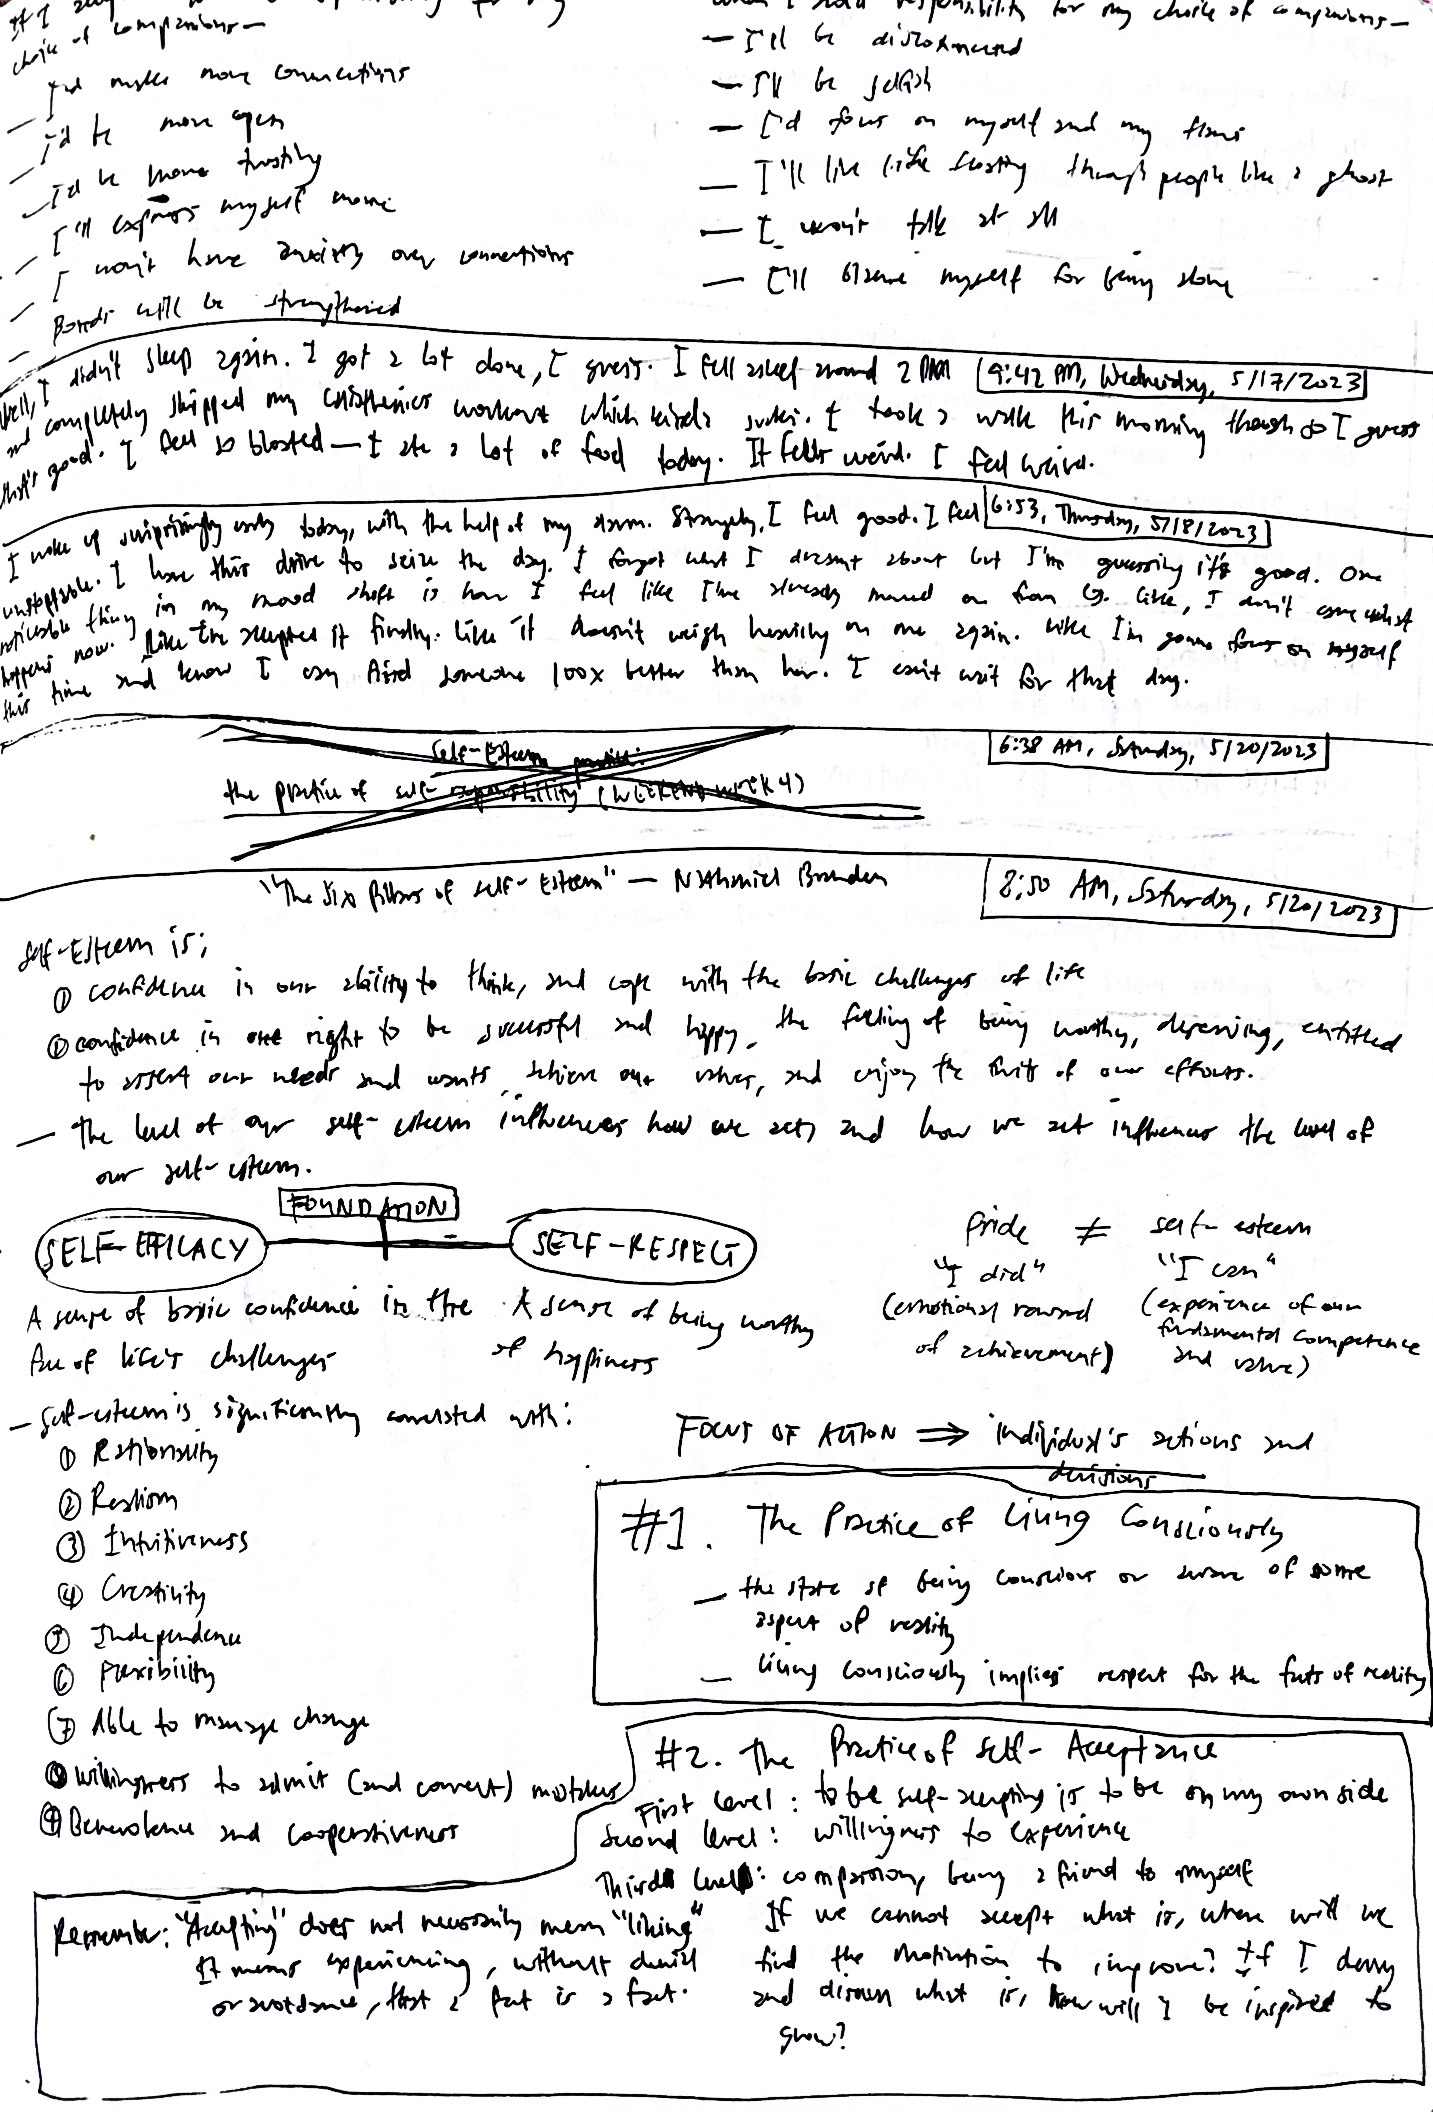 If I
choice of companions—
— I'd make more connections
— I'd be more open
— I'd be more trusting
— I'll express myself more
— I won't have anxiety over connections
— Bonds will be strengthened
responsibility for my choice of companions—
— I'll be disconnected
— I'll be selfish
— I'd focus on myself and my flaws
— I'll live life floating through people like a ghost
— I won't talk at all
— I'll blame myself for being alone
9:42 PM, Wednesday, 5/17/2023
Well, I didn't sleep again. I got a lot done, I guess. I fell asleep around 2 PM
and completely skipped my calisthenics workout which kinda sucks. I took a walk this morning though so I guess
that's good. I feel so bloated — I ate a lot of food today. It feels weird. I feel weird.
6:53, Thursday, 5/18/2023
I woke up surprisingly early today, with the help of my alarm. Strangely, I feel good. I feel
unstoppable. I have this drive to seize the day. I forgot what I dreamt about but I'm guessing it's good. One
noticeable thing in my mood shift is how I feel like I've already moved on from G. Like, I don't care what
happens now. Like I've accepted it finally. Like it doesn't weigh heavily on me again. Like I'm gonna focus on myself
this time and know I can find someone 100x better than her. I can't wait for that day.
6:38 AM, Saturday, 5/20/2023
Self-Esteem
the practice of self-responsibility (WEEKEND WEEK 4)
8:50 AM, Saturday, 5/20/2023
"The Six Pillars of Self-Esteem" — Nathaniel Branden
Self-Esteem is;
① confidence in our ability to think, and cope with the basic challenges of life
② confidence in our right to be successful and happy, the feeling of being worthy, deserving, entitled
to assert our needs and wants, achieve our values, and enjoy the fruits of our efforts.
— The level of our self-esteem influences how we act, and how we act influences the level of
our self-esteem.
FOUNDATION
SELF-EFFICACY SELF-RESPECT
A sense of basic confidence in the
face of life's challenges
A sense of being worthy
of happiness
Pride ≠ self-esteem
"I did" "I can"
(emotional reward
of achievement)
(experience of our
fundamental competence
and value)
— Self-esteem is significantly correlated with:
① Rationality
② Realism
③ Intuitiveness
④ Creativity
⑤ Independence
⑥ Flexibility
⑦ Able to manage change
⑧ Willingness to admit (and correct) mistakes
⑨ Benevolence and cooperativeness
FOCUS OF ACTION ⇒ individual's actions and
decisions
#1. The Practice of Living Consciously
— the state of being conscious or aware of some
aspect of reality
— living consciously implies respect for the facts of reality
#2. The Practice of Self-Acceptance
First level: to be self-accepting is to be on my own side
Second level: willingness to experience
Third level: compassion, being a friend to myself
Remember: "Accepting" does not necessarily mean "liking"
It means experiencing, without denial
or avoidance, that a fact is a fact.
If we cannot accept what is, where will we
find the motivation to improve? If I deny
and disown what is, how will I be inspired to
grow?